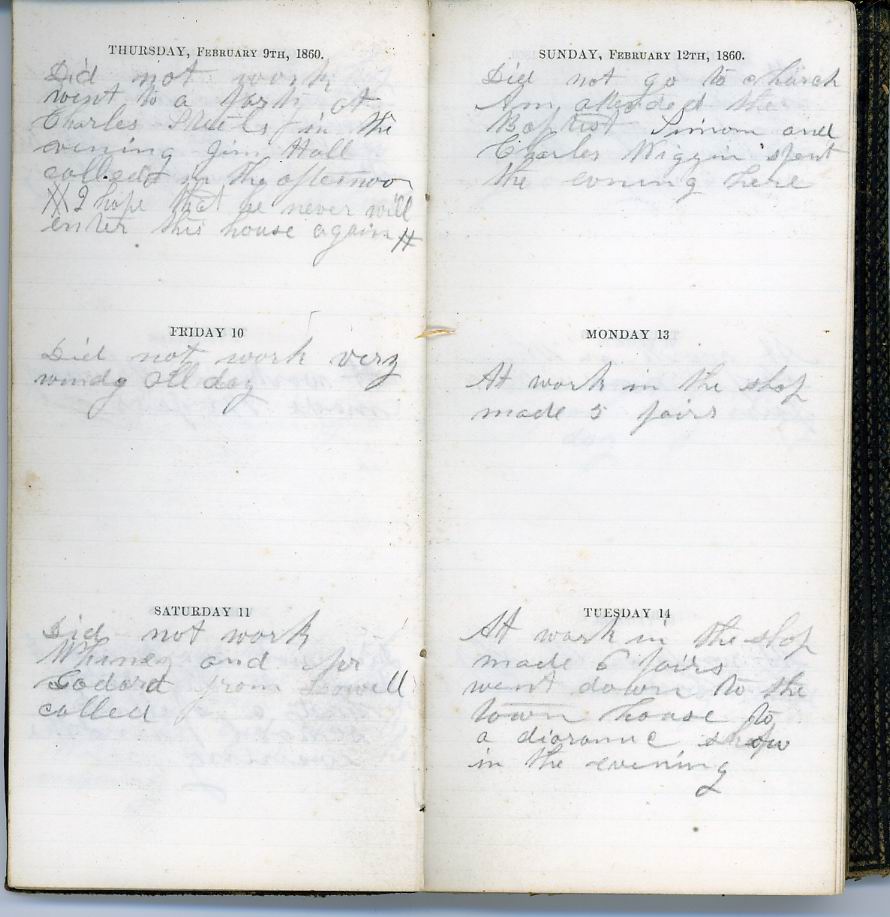 THURSDAY, FEBRUARY 9TH, 1860.
Did not work
went to a party at
Charles in the
evening Jim Hall
called in the afternoon
XX I hope that he never will
enter this house again #
FRIDAY 10
Did not work very
windy all day
SATURDAY 11
Did not work
and
from Lowell
called
SUNDAY, FEBRUARY 12TH, 1860.
Did not go to church
Am attended the
Baptist and
Charles Wiggin spent
the evning here
MONDAY 13
At work in the shop
made 5 pairs
TUESDAY 14
At work in the shop
made 6 pairs
went down to the
town house to
a diorame show
in the evening